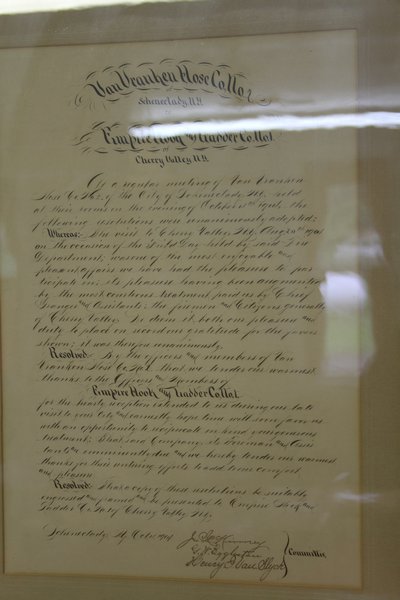 Van Vranken Hose Co. No. 2
Schenectady, N.Y.
to
Empire Hook and Ladder Co. No. 1.
of
Cherry Valley, N.Y.
At a regular meeting of Van Vranken
Hose Co. No. 2, of the City of Schenectady, N.Y., held
at their rooms in the evening of October 1901, the
following resolutions were unanimously adopted:
Whereas: Our visit to Cherry Valley, N.Y., Aug. 1901
on the occasion of the Field Day held by said Fire
Department, was one of the most enjoyable and
pleasant affairs we have had the pleasure to par-
ticipate in, its pleasure having been augmented
by the most courteous treatment paid us by Chief
and Assistants, the firemen and Citizens generally
of Cherry Valley. We deem it both our pleasure and
duty to place on record our gratitude for the favors
shown; it was therefore unanimously,
Resolved: By the officers and members of Van
Vranken Hose Co. No. 2 that we tender our warmest
thanks to the Officers and Members of
Empire Hook and Ladder Co. No. 1.
for the hearty reception extended to us during our late
visit to your City and earnestly hope time will soon favor us
with an opportunity to reciprocate in kind your generous
treatment; that said Company, its Foreman and Assis-
tants and we hereby tender our warmest
thanks for their untiring efforts to add to our comfort
and pleasure.
Resolved: That a copy of these resolutions be suitably
engrossed and framed and be presented to Empire Hook and
Ladder Co. No. 1 of Cherry Valley, N.Y.
Schenectady, N.Y. Oct. 1901
Committee
Henry C. Van Slyck